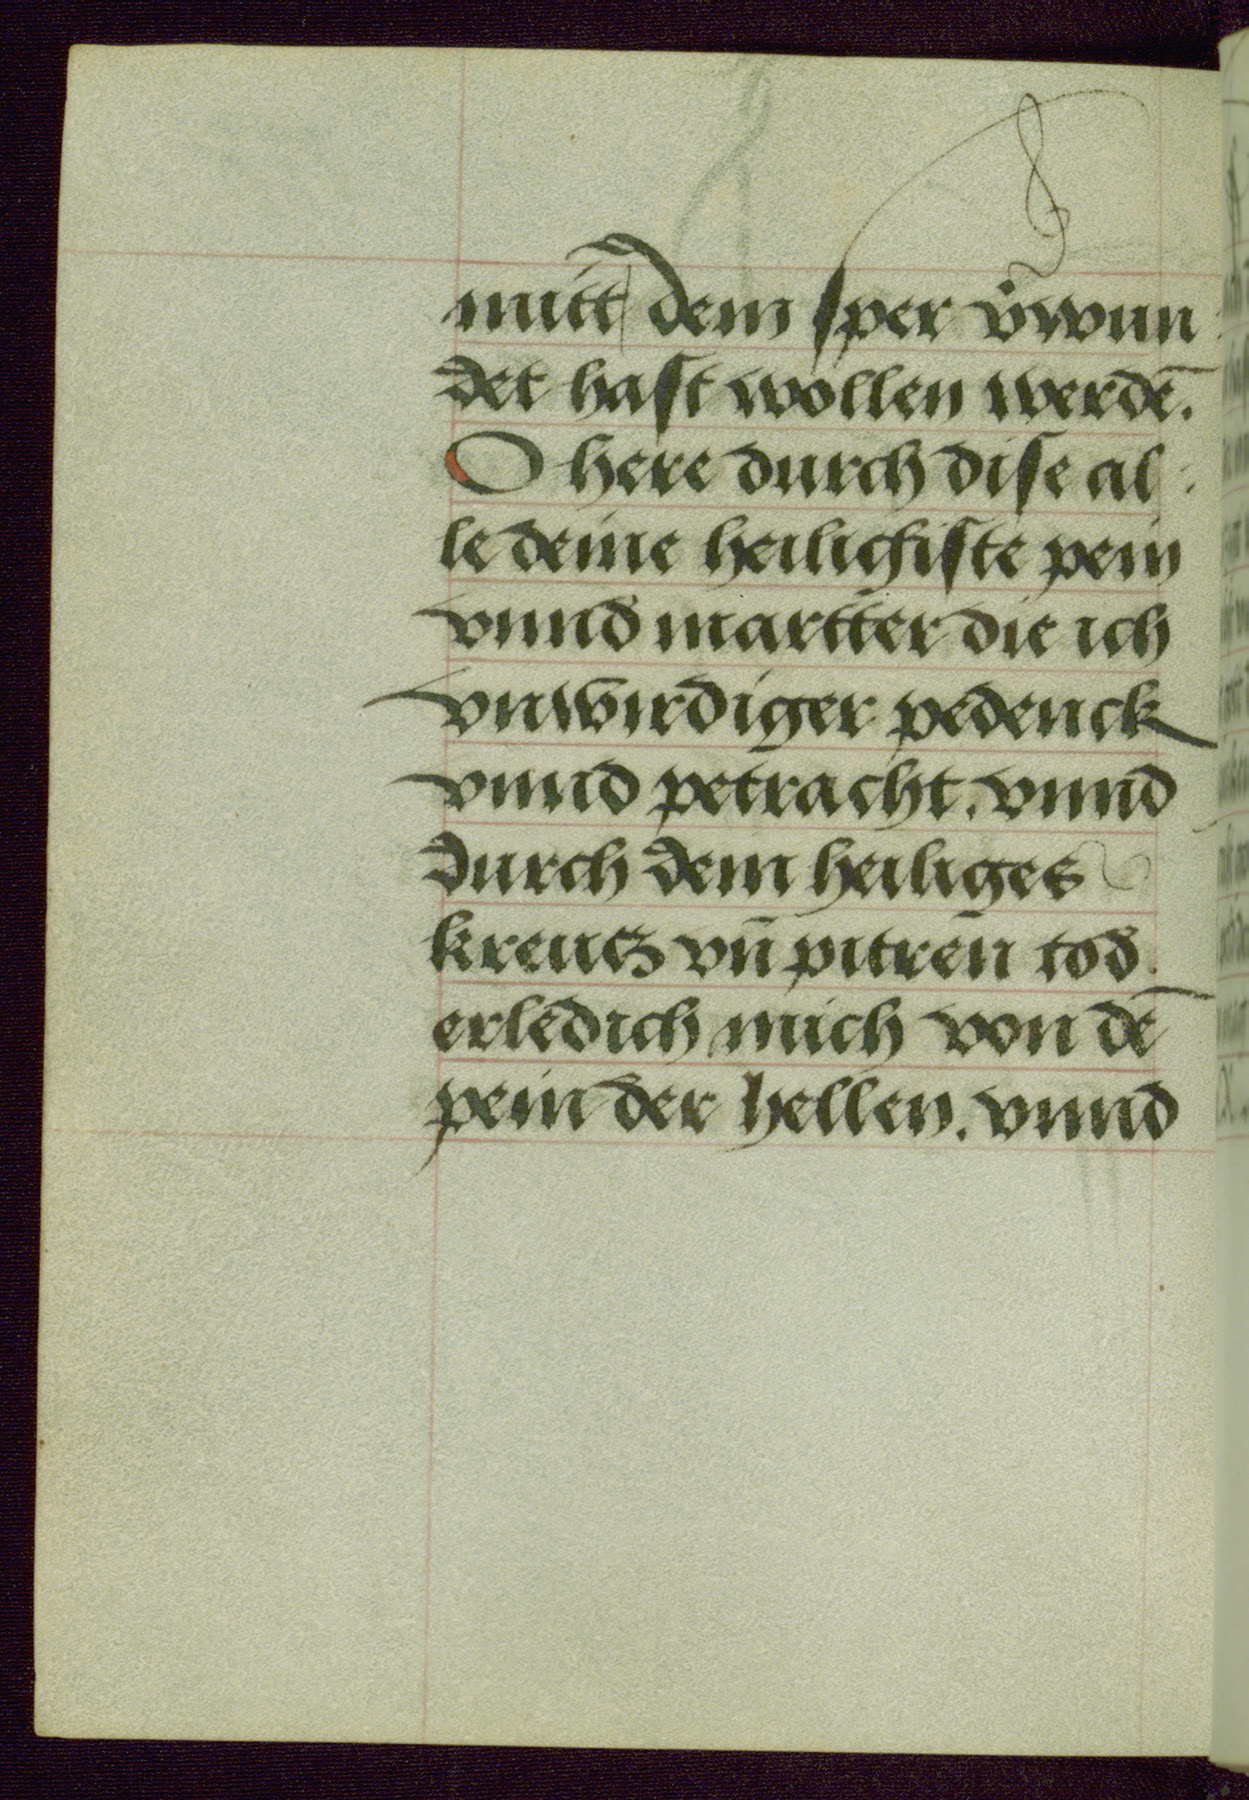 mitt dem sper v̉wun
det hast wollen werdē.
O here durch dise al
le deine heilichiste pein
vnnd martter die ich
vnwirdiger pedenck
vnnd petracht. vnnd
durch dein heiliges
kreutz vn̄ pitren̄ tod
erledich mich von dē
pein der hellen. vnnd